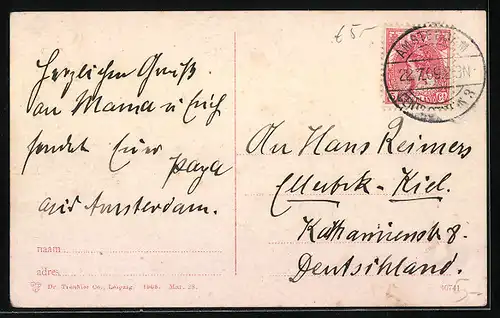 £ 5-
AMSTERDAM
Herzlichen Gruß
an Mama u Euch
sendet Euer
Papa
aus Amsterdam.
An Hans Reimers
Ellerbek-Kiel.
Katharinenstr 8.
Deutschland.
naam
adres
Dr. Trenkler Co., Leipzig. 1906. Mar. 23.